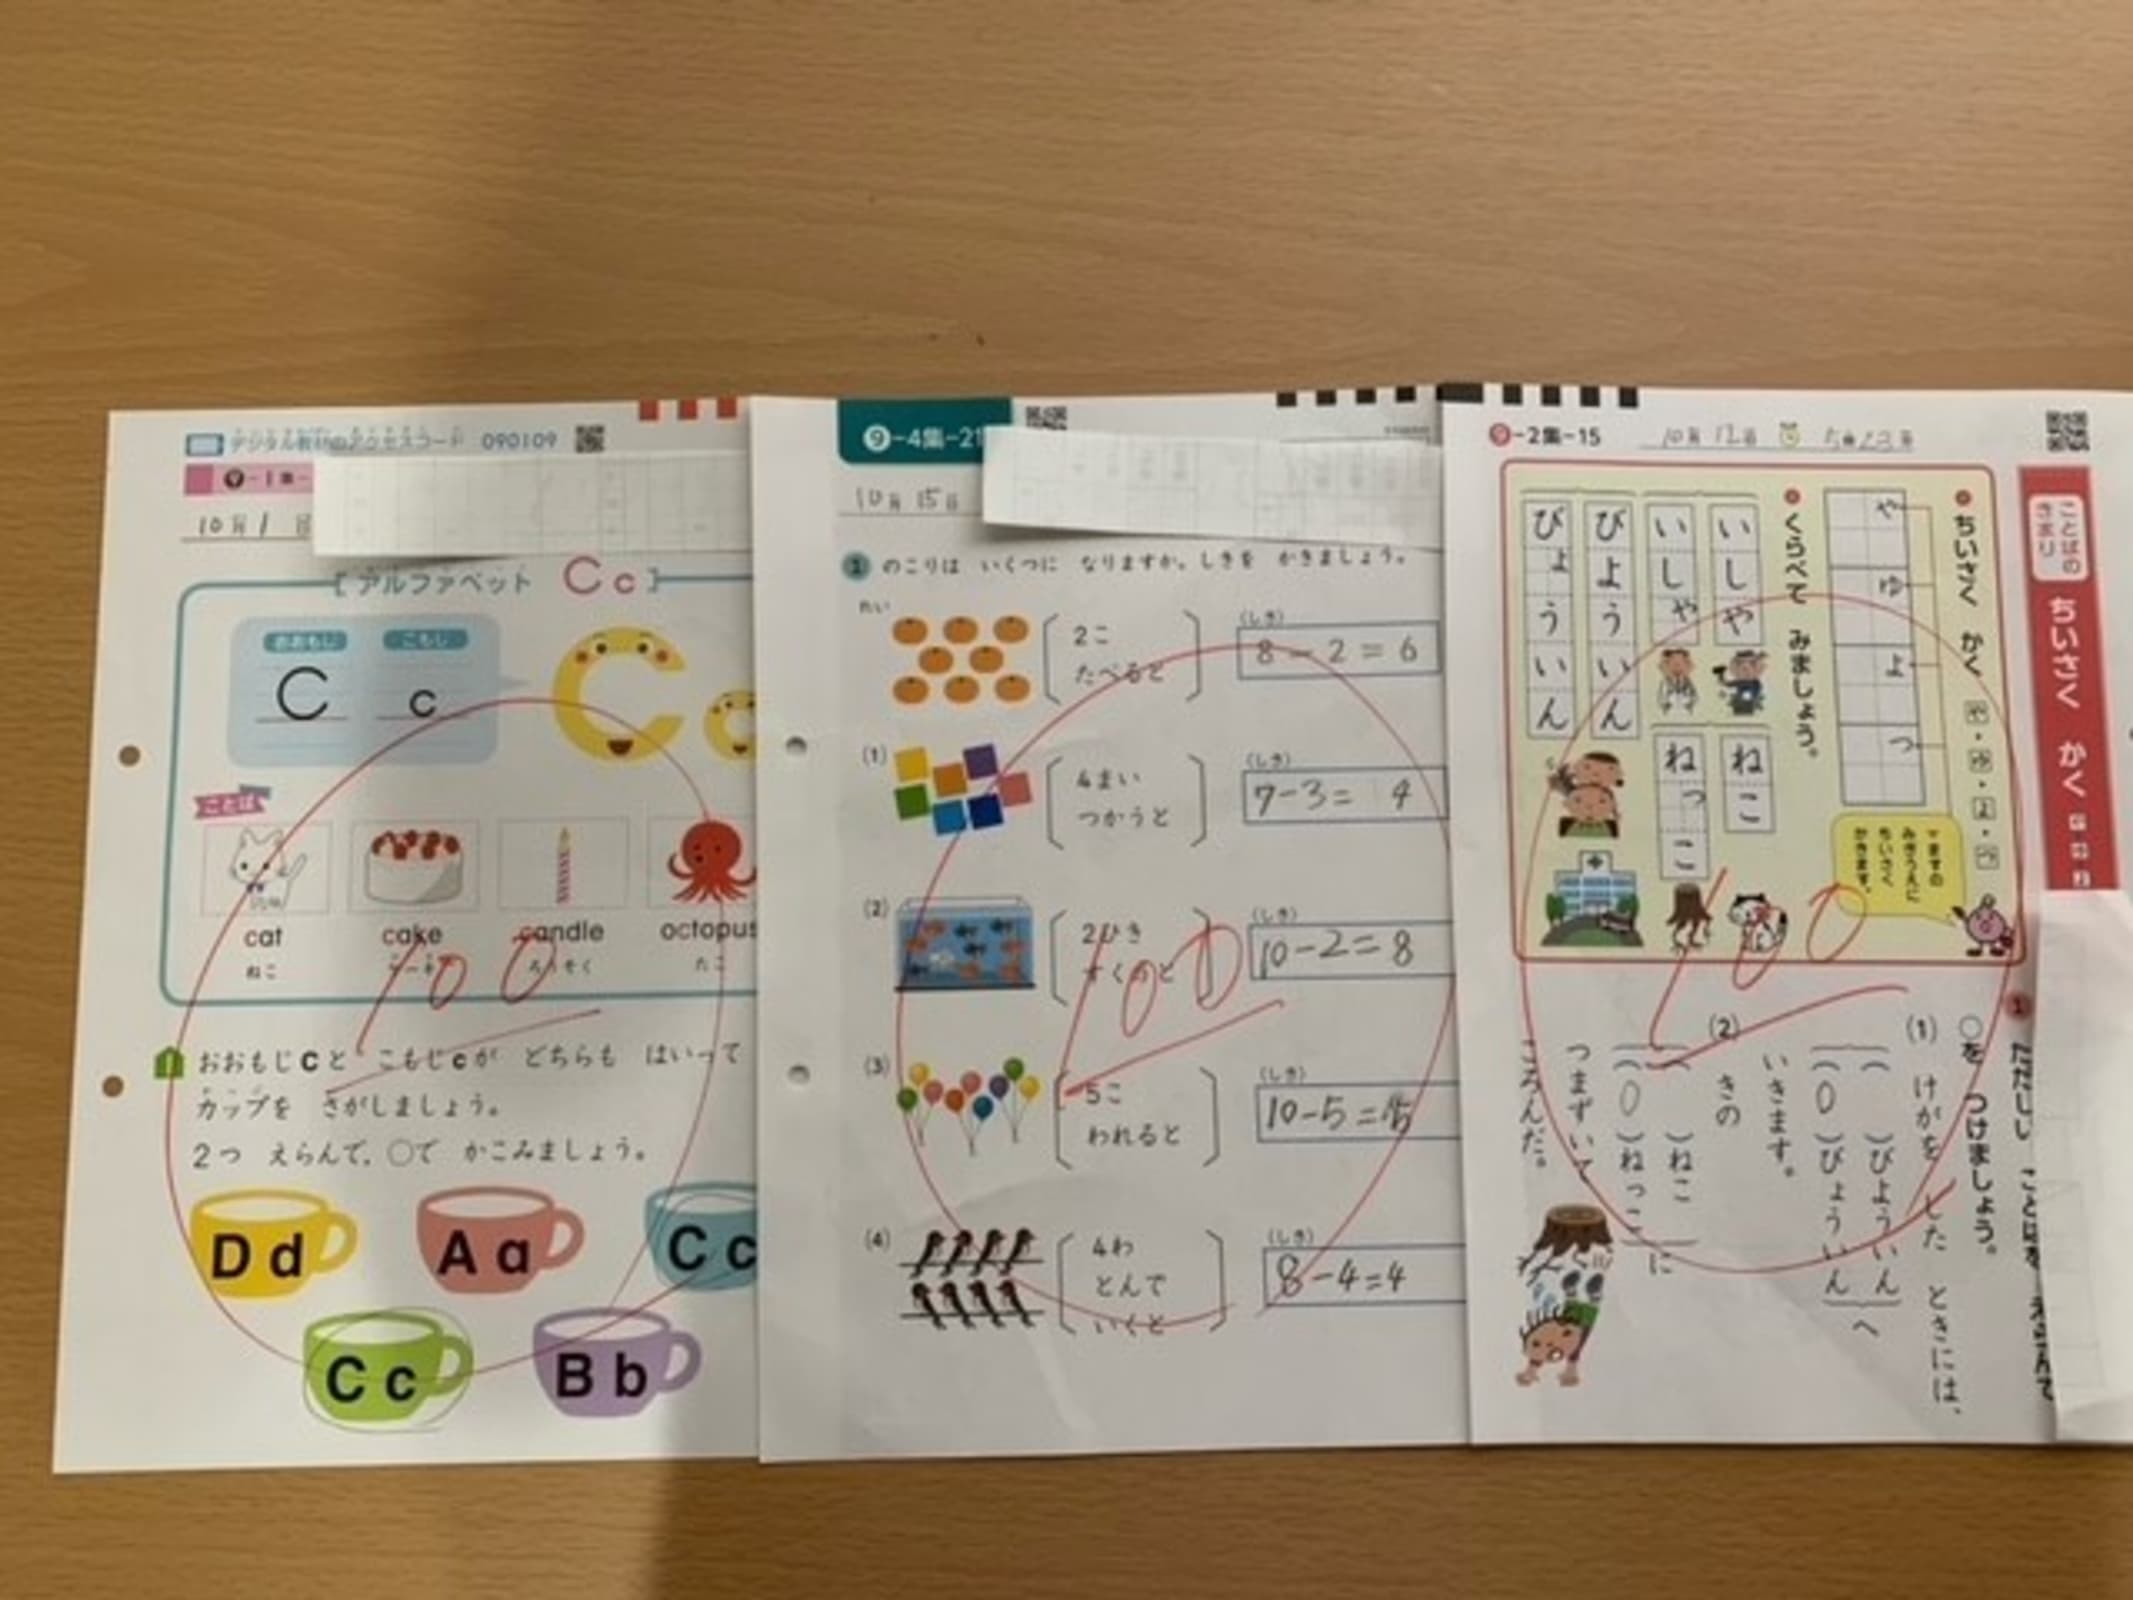 デジタル教材のアクセスコード 090109
10月1 日
アルファベット Cc
おおもじ こもじ
C c
ことば
cat cake candle octopus
ねこ けーき ろうそく たこ
1 おおもじCと こもじcが どちらも はいって
カップを さがしましょう。
2つ えらんで、○で かこみましょう。
Dd Aa Cc
Cc Bb
100
9-4集-21
10月 15日
1 のこりは いくつに なりますか。しきを かきましょう。
れい
2こ
たべると
(しき)
8-2=6
(1)
4まい
つかうと
(しき)
7-3= 4
(2)
2ひき
すくうと
(しき)
10-2=8
(3)
5こ
われると
(しき)
10-5=5
(4)
4わ
とんで
いくと
(しき)
8-4=4
100
9-2集-15
10月 12日
ことばの
きまり
ちいさく かく
ちいさく かく や・ゆ・よ・つ
や
ゆ
よ
つ
ますの
みぎうえに
ちいさく
かきます。
くらべて みましょう。
いしや
いしゃ
びよういん
びょういん
ねこ
ねっこ
1
○を つけましょう。
(1) けがを した ときには、
( )びよういん
(○)びょういん
へ
いきます。
(2) きの
( )ねこ
(○)ねっこ
に
つまずいて
ころんだ。
100